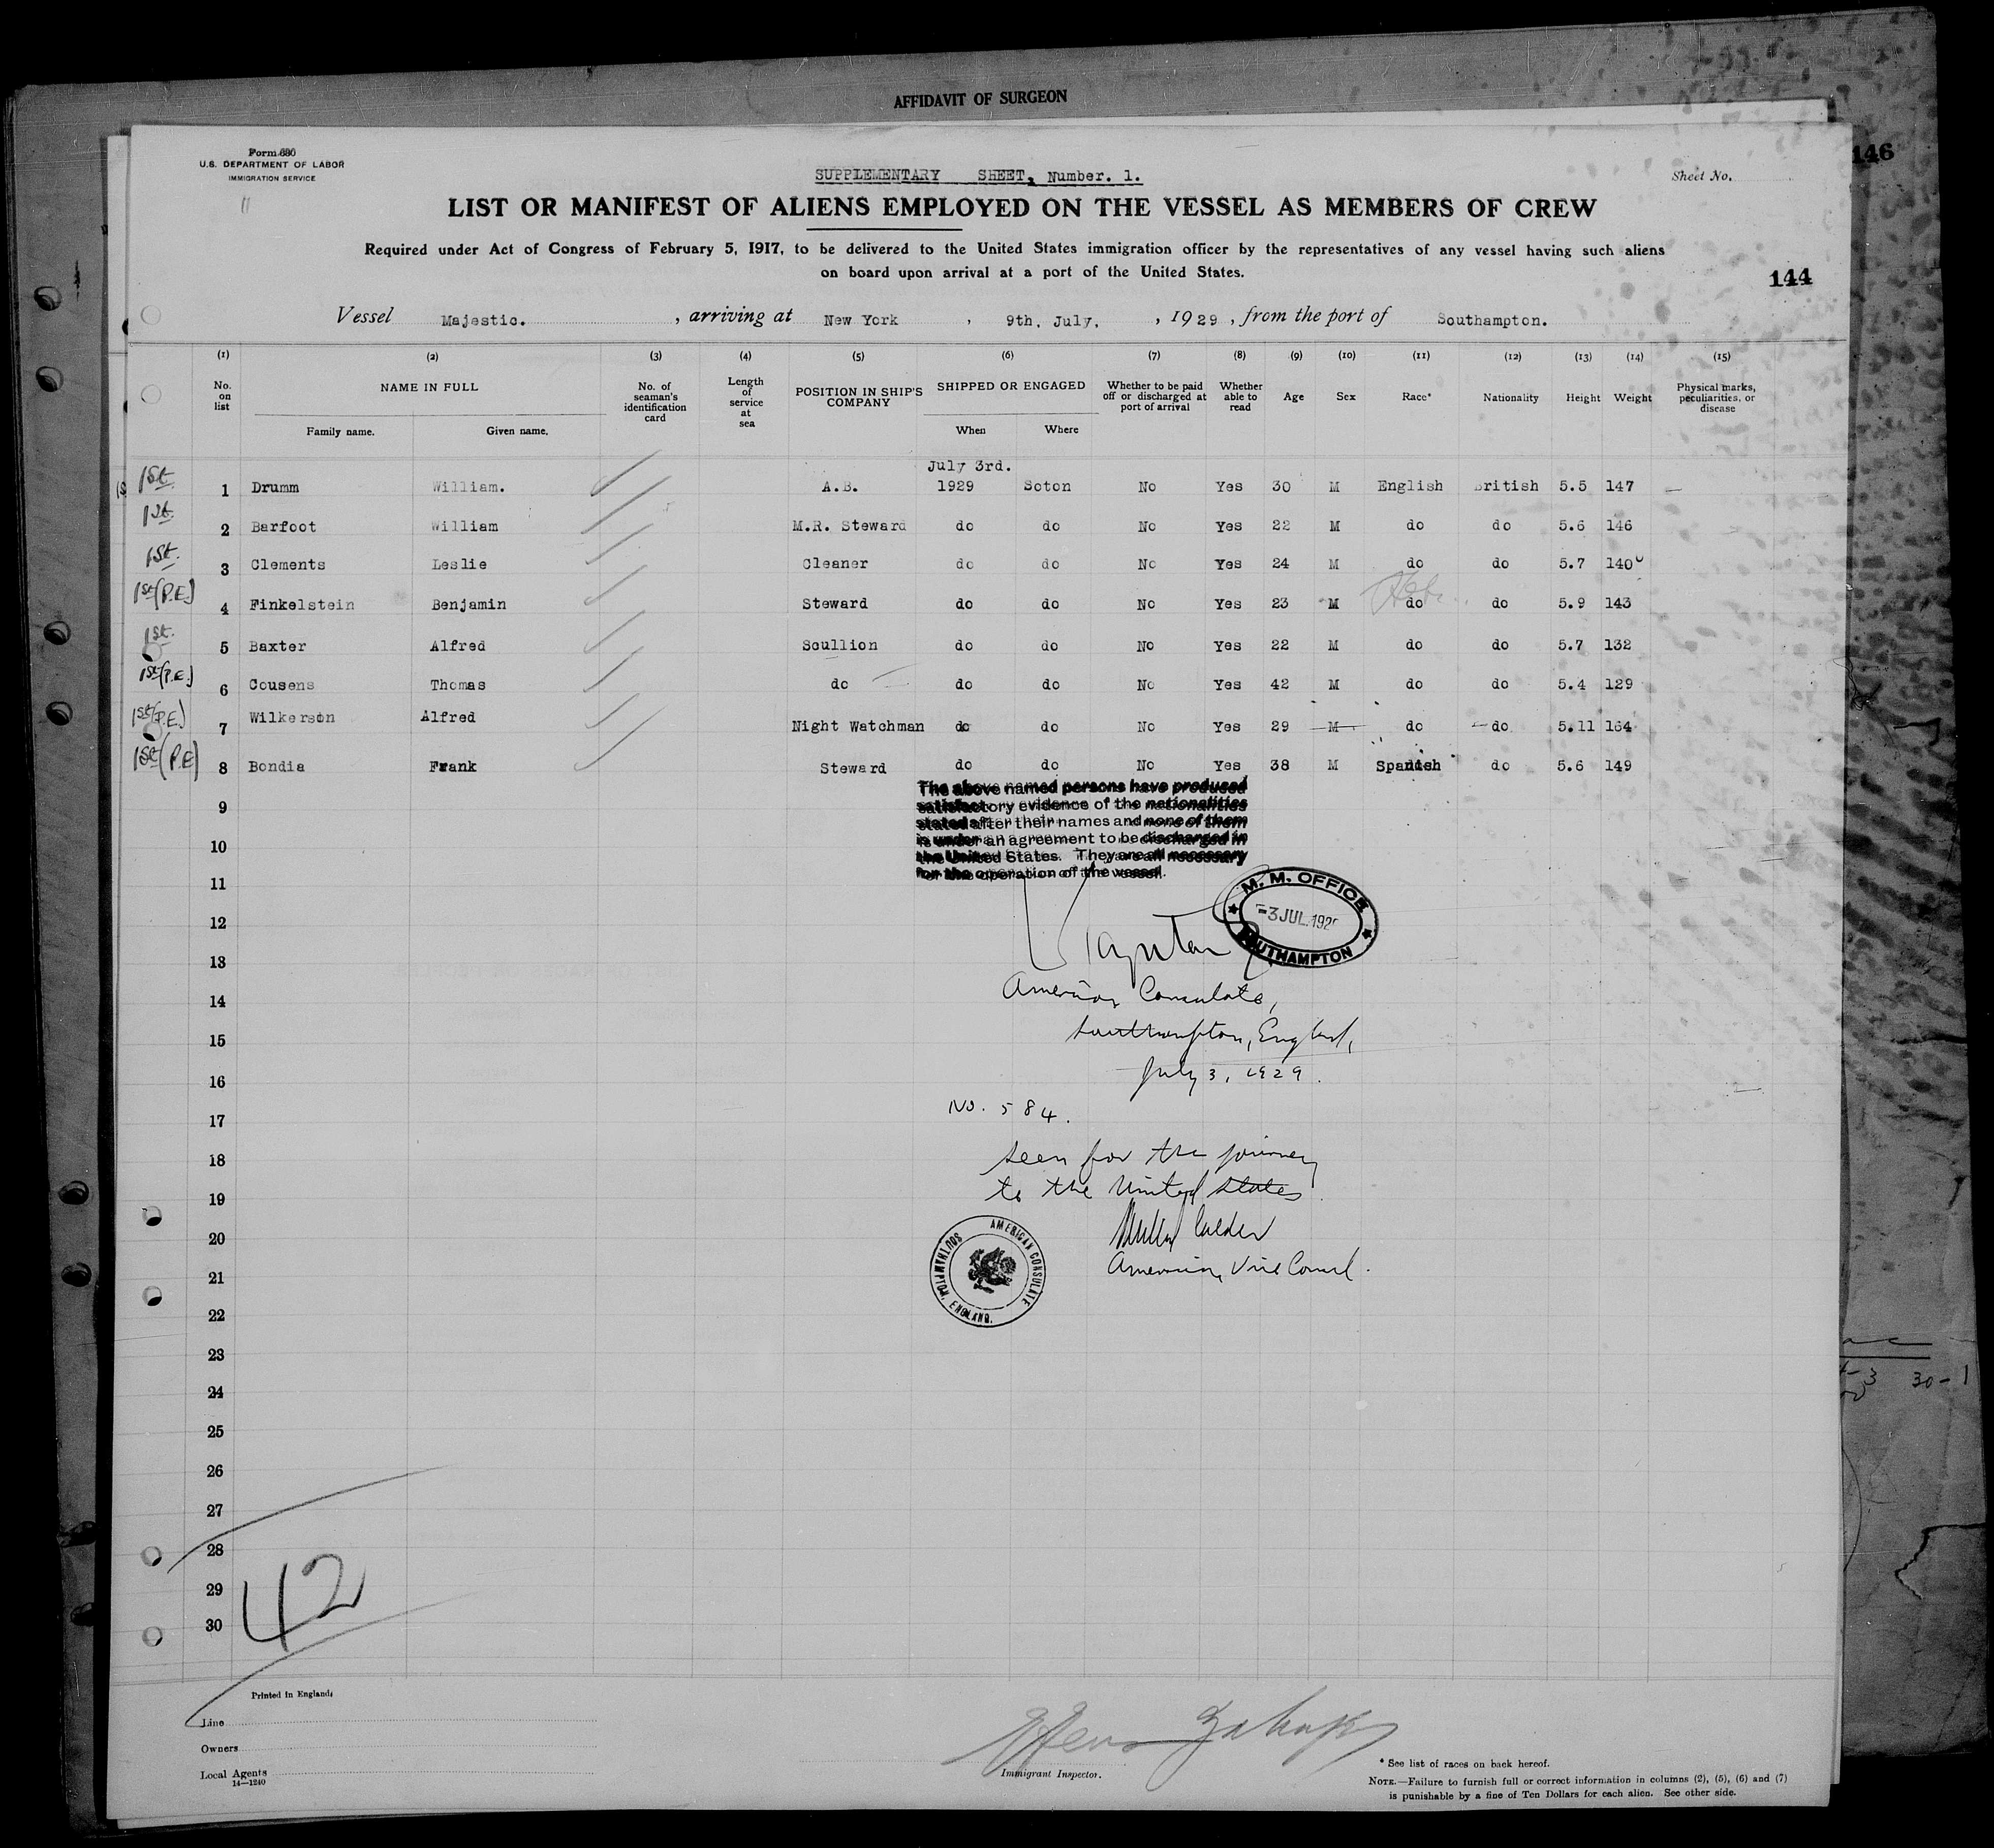 AFFIDAVIT OF SURGEON
146
Form 680
U.S. DEPARTMENT OF LABOR
IMMIGRATION SERVICE
SUPPLEMENTARY SHEET, Number. 1.
Sheet No.
LIST OR MANIFEST OF ALIENS EMPLOYED ON THE VESSEL AS MEMBERS OF CREW
Required under Act of Congress of February 5, 1917, to be delivered to the United States immigration officer by the representatives of any vessel having such aliens
on board upon arrival at a port of the United States.
144
Vessel Majestic. , arriving at New York , 9th. July. , 1929 , from the port of Southampton.
(1) (2) (3) (4) (5) (6) (7) (8) (9) (10) (11) (12) (13) (14) (15)
No. on list NAME IN FULL No. of seaman's identification card Length of service at sea POSITION IN SHIP'S COMPANY SHIPPED OR ENGAGED Whether to be paid off or discharged at port of arrival Whether able to read Age Sex Race* Nationality Height Weight Physical marks, peculiarities, or disease
Family name. Given name. When Where
July 3rd.
1st 1 Drumm William. A.B. 1929 Soton No Yes 30 M English British 5.5 147
1st. 2 Barfoot William M.R. Steward do do No Yes 22 M do do 5.6 146
1st. 3 Clements Leslie Cleaner do do No Yes 24 M do do 5.7 140
1st (P.E.) 4 Finkelstein Benjamin Steward do do No Yes 23 M do Heb. do 5.9 143
1st. 5 Baxter Alfred Scullion do do No Yes 22 M do do 5.7 132
1st (P.E.) 6 Cousens Thomas do do do No Yes 42 M do do 5.4 129
1st (P.E.) 7 Wilkerson Alfred Night Watchman do do No Yes 29 M do do 5.11 164
1st (P.E) 8 Bondia Frank Steward do do No Yes 38 M Spanish do 5.6 149
The above named persons have produced
satisfactory evidence of the nationalities
stated after their names and none of them
is under an agreement to be discharged in
the United States. They are all necessary
for the operation of the vessel.
9
10
11
12
13
14
15
16
17
18
19
20
21
22
23
24
25
26
27
28
29
30
M. M. OFFICE
3 JUL. 192
SOUTHAMPTON
American Consulate,
Southampton, England,
July 3, 1929.
No. 584.
Seen for the journey
to the United States.
Calder
American Vice Consul.
AMERICAN CONSULATE
SOUTHAMPTON, ENGLAND.
30-1
42
Printed in England
Line
Owners
Local Agents
14—1240
Immigrant Inspector.
* See list of races on back hereof.
NOTE.—Failure to furnish full or correct information in columns (2), (5), (6) and (7)
is punishable by a fine of Ten Dollars for each alien. See other side.